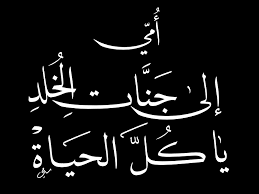 أُمّي
إلى جَنَّات الخُلدِ
يا كُلَّ الحيَاة